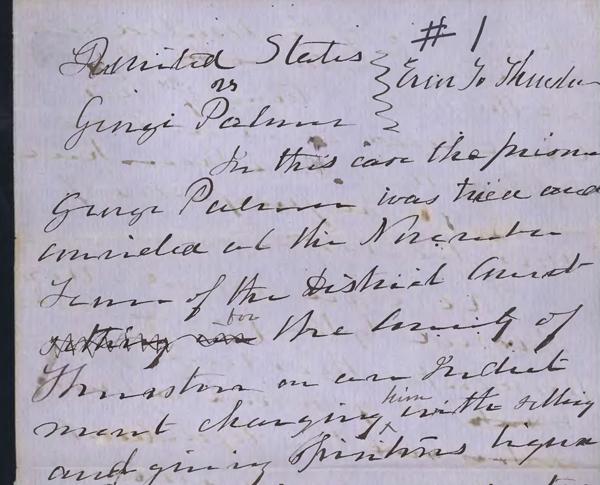 # 1
United States
vs
George Palmer
Error To Thurston
In this case the prison
George Palmer was tried and
convicted at the November
Term of the District Court
for the County of
Thurston on an Indict
ment charging him with selling
and giving spiritous liquo